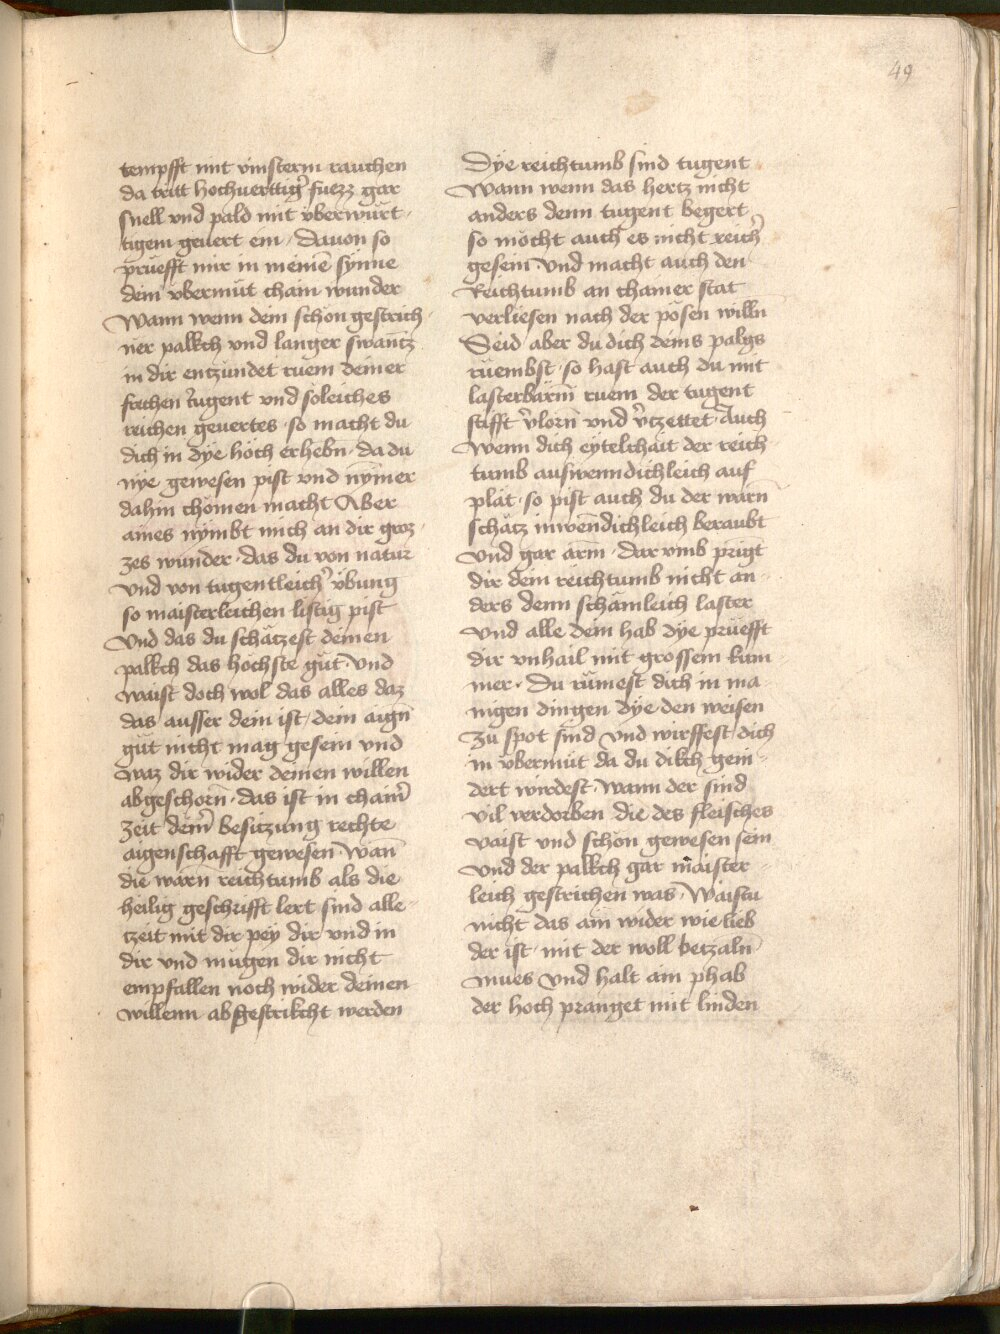 49
tempfft mit vinsterm rauchen
da tritt hochuerttig̉ fuezz gar
snell vnd pald mit v̈berwürt-
tigem geuert ein · Dauon so
prüefft mir in meinē synne
dein v̈bermüt cham wunder
Wann wenn dem schön gestrich-
ner palkch vnd langer swantz
in dir entzündet ruem deiner
frechen tugent vnd söleiches
reichen geuertes · so macht du
dich in dÿe höch erhebn̄ · da du
nÿe gewesen pist vnd nȳmer
dahin chömen macht Aber
aines nÿmbt mich an dir groz-
zes wunder · das du von natur
vnd von tugentleich̉ v̈bung
so maisterleichen listig pist
Vnd das du schätzest deinen
palkch das höchste güt · Vnd
waist doch wol das alles daz
das ausser dein ist · dein aign̄
güt nicht mag gesein vnd
waz dir wider deinen willen
abgeschorn̄ · das ist in chain̉
zeit dein̉ besitzung rechte
aigenschafft gewesen · Wan̄
die warn̄ reichtumb als die
heilig geschrifft lert sind alle-
tzeit mit dir peÿ dir vnd in
dir vnd mugen dir nicht
empfallen noch wider deinen
willenn abgestrikcht werden
Dÿe reichtumb sind tugent
Wann wenn das hertz nicht
anders denn tugent begert
so möcht auch es nicht reich̉
gesein · Vnd macht auch den
Reichtumb an chainer stat
verliesen nach der pösen willn̄
Seid aber du dich deins palgs
ruembst · so hast auch du mit
lasterbärm̄ ruem der tugent
stifft v̉lorn̄ vnd v̉tzettet · Auch
Wenn dich eÿtelchait der reich-
tumb auswenndichleich auf
plät · so pist auch du der warn̄
schätz inwendichleich beraubt
Vnd gar arm̄ · Dar vmb pringt
dir dein reichtumb nicht an-
ders denn schämleich laster
Vnd alle dein hab dÿe prüefft
dir vnhail mit grossem kum-
mer · Du rümest dich in ma-
nigen dingen dÿe den weisen
zu spot sind vnd wirffest dich
in v̈bermüt da du dikch gein-
dert wirdest · Wann der sind
vil verdorben die des fleisches
vaist vnd schön gewesen sein
Vnd der palkch gar maister-
leich gestrichen was · Waistu
nicht das ain wider wie lieb
der ist · mit der woll betzaln̄
mues Vnd halt ain phab
der hoch pranget mit linden